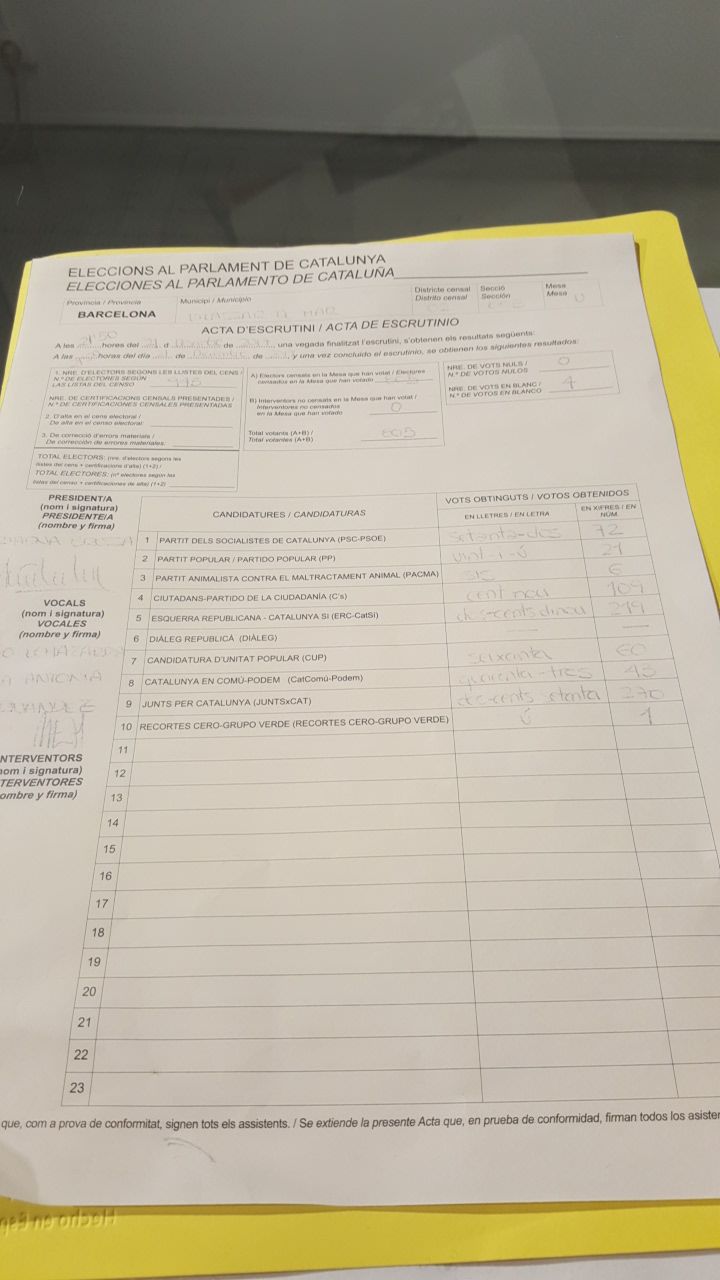 ELECCIONS AL PARLAMENT DE CATALUNYA
ELECCIONES AL PARLAMENTO DE CATALUÑA
Província / Provincia
BARCELONA
Municipi / Municipio
Districte censal
Distrito censal
Secció
Sección
Mesa
Mesa U
ACTA D'ESCRUTINI / ACTA DE ESCRUTINIO
A les 21'50 hores del 21 d de , una vegada finalitzat l'escrutini, s'obtenen els resultats següents:
A las horas del día de de , y una vez concluido el escrutinio, se obtienen los siguientes resultados:
1. NRE. D'ELECTORS SEGONS LES LLISTES DEL CENS /
N.º DE ELECTORES SEGÚN
LAS LISTAS DEL CENSO
NRE. DE CERTIFICACIONS CENSALS PRESENTADES /
N.º DE CERTIFICACIONES CENSALES PRESENTADAS
2. D'alta en el cens electoral /
De alta en el censo electoral:
3. De correcció d'errors materials /
De corrección de errores materiales:
TOTAL ELECTORS: (nre. d'electors segons les
llistes del cens + certificacions d'alta) (1+2) /
TOTAL ELECTORES: (nº electores según las
listas del censo + certificaciones de alta) (1+2)
A) Electors censats en la Mesa que han votat / Electores
censados en la Mesa que han votado
B) Interventors no censats en la Mesa que han votat /
Interventores no censados
en la Mesa que han votado 0
Total votants (A+B) /
Total votantes (A+B) 805
NRE. DE VOTS NULS /
N.º DE VOTOS NULOS 0
NRE. DE VOTS EN BLANC /
N.º DE VOTOS EN BLANCO 4
PRESIDENT/A
(nom i signatura)
PRESIDENTE/A
(nombre y firma)
VOCALS
(nom i signatura)
VOCALES
(nombre y firma)
ANTONIA
NTERVENTORS
nom i signatura)
TERVENTORES
ombre y firma)
CANDIDATURES / CANDIDATURAS
VOTS OBTINGUTS / VOTOS OBTENIDOS
EN LLETRES / EN LETRA
EN XIFRES / EN NÚM.
1 PARTIT DELS SOCIALISTES DE CATALUNYA (PSC-PSOE) setanta-dos 72
2 PARTIT POPULAR / PARTIDO POPULAR (PP) vint-i-ú 21
3 PARTIT ANIMALISTA CONTRA EL MALTRACTAMENT ANIMAL (PACMA) sis 6
4 CIUTADANS-PARTIDO DE LA CIUDADANÍA (C's) cent nou 109
5 ESQUERRA REPUBLICANA - CATALUNYA SÍ (ERC-CatSí) dos-cents dinou 219
6 DIÀLEG REPUBLICÀ (DIÀLEG) — —
7 CANDIDATURA D'UNITAT POPULAR (CUP) seixanta 60
8 CATALUNYA EN COMÚ-PODEM (CatComú-Podem) quaranta-tres 43
9 JUNTS PER CATALUNYA (JUNTSxCAT) dos-cents setanta 270
10 RECORTES CERO-GRUPO VERDE (RECORTES CERO-GRUPO VERDE) ú 1
11
12
13
14
15
16
17
18
19
20
21
22
23
que, com a prova de conformitat, signen tots els assistents. / Se extiende la presente Acta que, en prueba de conformidad, firman todos los asister